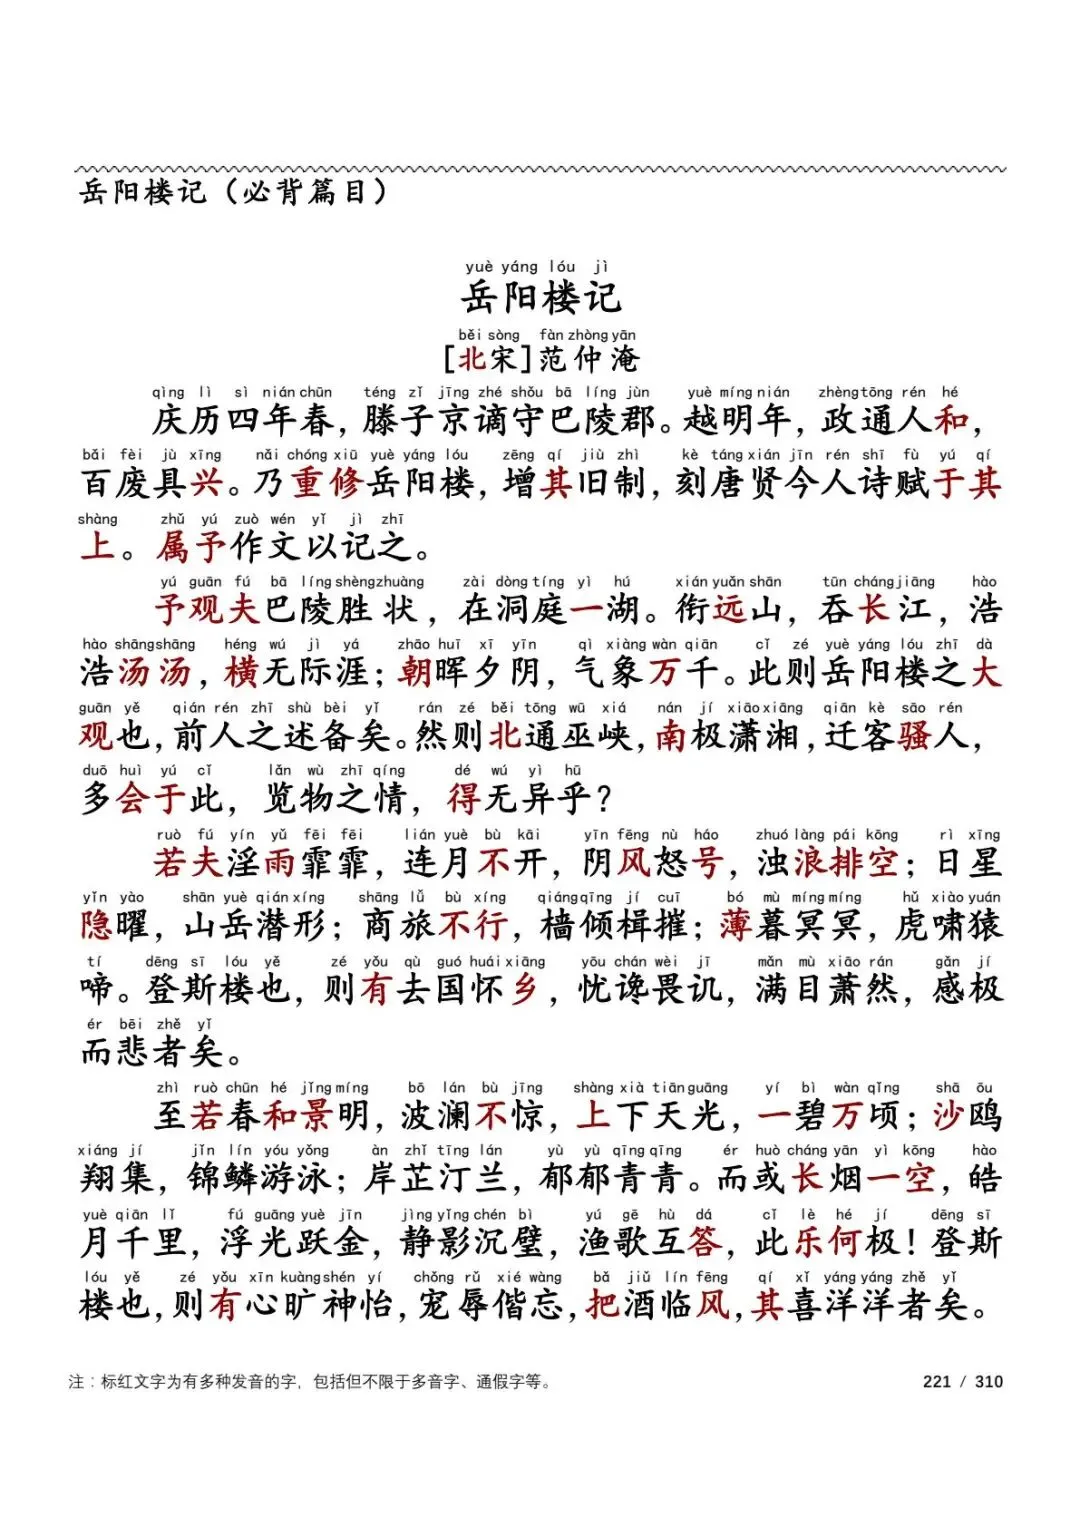 岳阳楼记（必背篇目）
yuè yáng lóu jì
岳阳楼记
běi sòng fàn zhòng yān
[北宋]范仲淹
qìng lì sì nián chūn téng zǐ jīng zhé shǒu bā líng jùn yuè míng nián zhèng tōng rén hé
庆历四年春，滕子京谪守巴陵郡。越明年，政通人和，
bǎi fèi jù xīng nǎi chóng xiū yuè yáng lóu zēng qí jiù zhì kè táng xián jīn rén shī fù yú qí
百废具兴。乃重修岳阳楼，增其旧制，刻唐贤今人诗赋于其
shàng zhǔ yú zuò wén yǐ jì zhī
上。属予作文以记之。
yú guān fú bā líng shèng zhuàng zài dòng tíng yì hú xián yuǎn shān tūn cháng jiāng hào
予观夫巴陵胜状，在洞庭一湖。衔远山，吞长江，浩
hào shāng shāng héng wú jì yá zhāo huī xī yīn qì xiàng wàn qiān cǐ zé yuè yáng lóu zhī dà
浩汤汤，横无际涯；朝晖夕阴，气象万千。此则岳阳楼之大
guān yě qián rén zhī shù bèi yǐ rán zé běi tōng wū xiá nán jí xiāo xiāng qiān kè sāo rén
观也，前人之述备矣。然则北通巫峡，南极潇湘，迁客骚人，
duō huì yú cǐ lǎn wù zhī qíng dé wú yì hū
多会于此，览物之情，得无异乎？
ruò fú yín yǔ fēi fēi lián yuè bù kāi yīn fēng nù háo zhuó làng pái kōng rì xīng
若夫淫雨霏霏，连月不开，阴风怒号，浊浪排空；日星
yǐn yào shān yuè qián xíng shāng lǚ bù xíng qiáng qīng jí cuī bó mù míng míng hǔ xiào yuán
隐曜，山岳潜形；商旅不行，樯倾楫摧；薄暮冥冥，虎啸猿
tí dēng sī lóu yě zé yǒu qù guó huái xiāng yōu chán wèi jī mǎn mù xiāo rán gǎn jí
啼。登斯楼也，则有去国怀乡，忧谗畏讥，满目萧然，感极
ér bēi zhě yǐ
而悲者矣。
zhì ruò chūn hé jǐng míng bō lán bù jīng shàng xià tiān guāng yí bì wàn qǐng shā ōu
至若春和景明，波澜不惊，上下天光，一碧万顷；沙鸥
xiáng jí jǐn lín yóu yǒng àn zhǐ tīng lán yù yù qīng qīng ér huò cháng yān yì kōng hào
翔集，锦鳞游泳；岸芷汀兰，郁郁青青。而或长烟一空，皓
yuè qiān lǐ fú guāng yuè jīn jìng yǐng chén bì yú gē hù dá cǐ lè hé jí dēng sī
月千里，浮光跃金，静影沉璧，渔歌互答，此乐何极！登斯
lóu yě zé yǒu xīn kuàng shén yí chǒng rǔ xié wàng bǎ jiǔ lín fēng qí xǐ yáng yáng zhě yǐ
楼也，则有心旷神怡，宠辱偕忘，把酒临风，其喜洋洋者矣。
注：标红文字为有多种发音的字，包括但不限于多音字、通假字等。 221 / 310